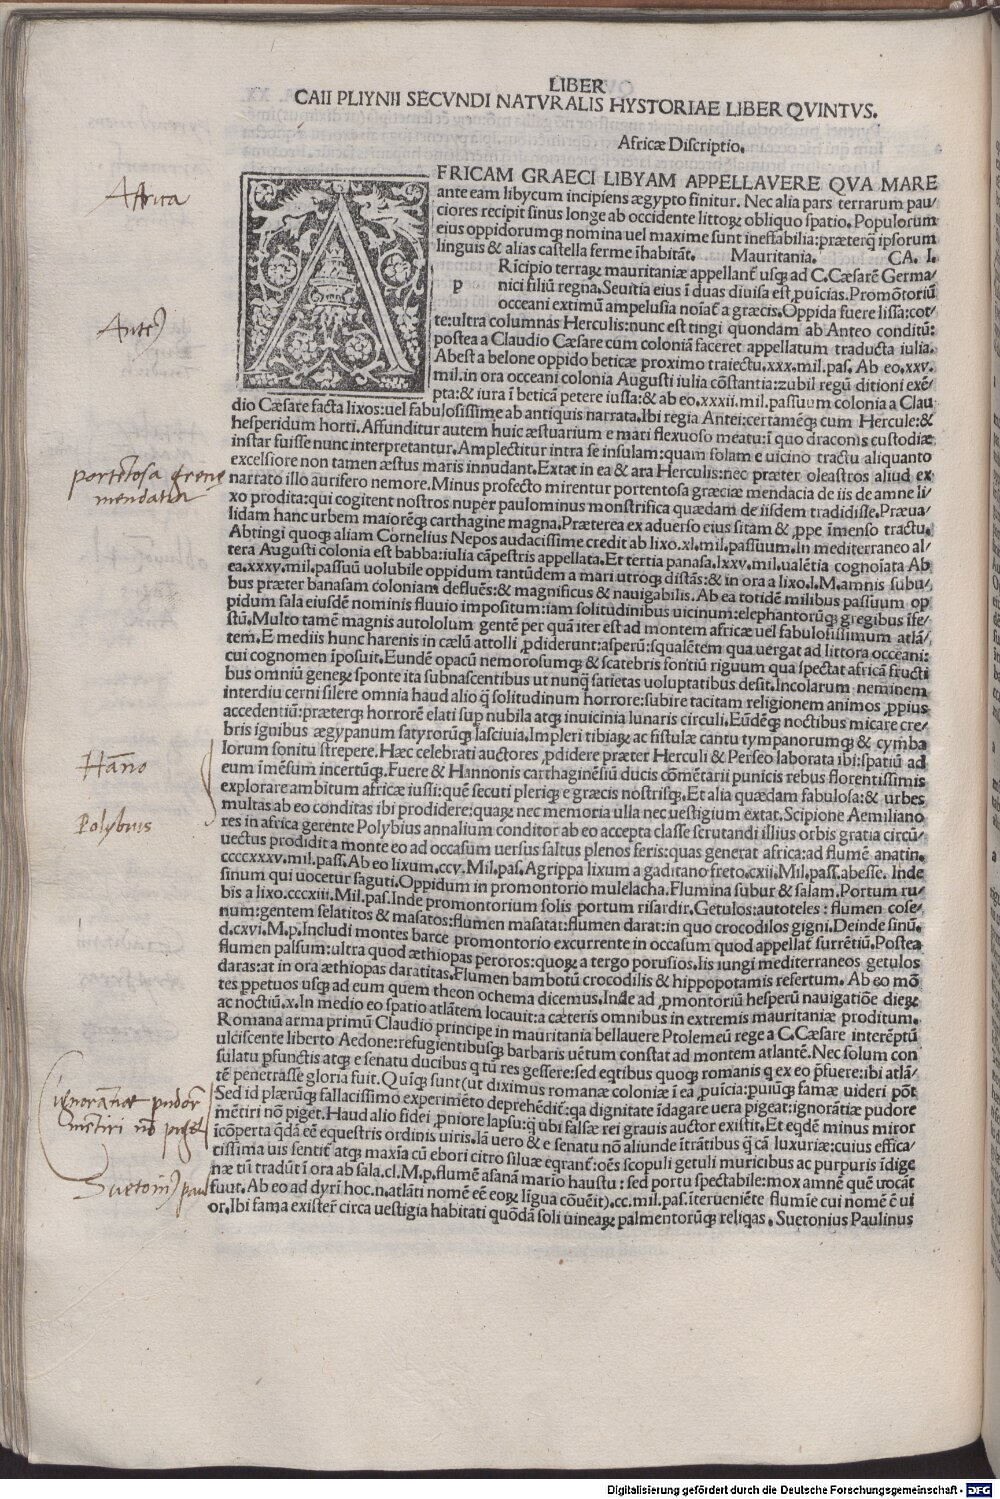 LIBER
CAII PLIYNII SECVNDI NATVRALIS HYSTORIAE LIBER QVINTVS.
Africæ Discriptio.
AFRICAM GRAECI LIBYAM APPELLAVERE QVA MARE
ante eam libycum incipiens ægypto finitur. Nec alia pars terrarum pau/
ciores recipit sinus longe ab occidente littoꝝ obliquo spatio. Populorum
eius oppidorumqꝫ nomina uel maxime sunt ineffabilia:præterꝗ̃ ipsorum
linguis & alias castella ferme ĩhabitãt. Mauritania. CA. I.
pRĩcipio terraꝝ mauritaniæ appellant̃ usqꝫ ad C.Cæsarẽ Germa/
nici filiũ regna.Seuitia eius ĩ duas diuisa est ꝓuĩcias.Promõtoriũ
occeani extimũ ampelusia noĩat̃ a græcis.Oppida fuere lissa:cot/
te:ultra columnas Herculis:nunc est tingi quondam ab Anteo conditũ:
postea a Claudio Cæsare cum coloniã faceret appellatum traducta iulia.
Abest a belone oppido beticæ proximo traiectu.xxx.mil.pas. Ab eo.xxv.
mil.in ora occeani colonia Augusti iulia cõstantia:zubil regũ ditioni exẽ/
pta:& iura ĩ beticã petere iussa:& ab eo.xxxii.mil.passuum colonia a Clau
dio Cæsare facta lixos:uel fabulosissime ab antiquis narrata.Ibi regia Antei:certamẽqꝫ cum Hercule:&
hesperidum horti.Affunditur autem huic æstuarium e mari flexuoso meatu:ĩ quo draconis custodiæ
instar fuisse nunc interpretantur.Amplectitur intra se insulam:quam solam e uicino tractu aliquanto
excelsiore non tamen æstus maris innudant.Extat in ea & ara Herculis:nec præter oleastros aliud ex
narrato illo aurifero nemore.Minus profecto mirentur portentosa græciæ mendacia de iis de amne li/
xo prodita:qui cogitent nostros nuper paulominus monstrifica quædam de iisdem tradidisse.Præua/
lidam hanc urbem maiorẽqꝫ carthagine magna.Præterea ex aduerso eius sitam & ꝓpe ĩmenso tractu.
Abtingi quoqꝫ aliam Cornelius Nepos audacissime credit ab lixo.xl.mil.passuum.In mediterraneo al/
tera Augusti colonia est babba:iulia cãpestris appellata.Et tertia panasa.lxxv.mil.ualẽtia cognoiata Ab
ea.xxxv.mil.passuũ uolubile oppidum tantũdem a mari utroqꝫ distãs:& in ora a lixo.l.M.amnis subu/
bus præter banasam coloniam defluẽs:& magnificus & nauigabilis.Ab ea totidẽ milibus passuum op
pidum sala eiusdẽ nominis fluuio impositum:iam solitudinibus uicinum:elephantorũqꝫ gregibus ĩfe/
stũ.Multo tamẽ magnis autololum gentẽ per quã iter est ad montem africæ uel fabulosissimum atlã/
tem.E mediis hunc harenis in cælũ attolli ꝓdiderunt:asperũ:squalẽtem qua uergat ad littora occeani:
cui cognomen ĩposuit.Eundẽ opacũ nemorosumqꝫ & scatebris fontiũ riguum qua spectat africã fructi
bus omniũ geneꝝ sponte ita subnascentibus ut nunꝗ̃ satietas uoluptatibus desit.Incolarum neminem
interdiu cerni silere omnia haud alio ꝗ̃ solitudinum horrore:subire tacitam religionem animos ꝓpius
accedentiũ:præterqꝫ horrorẽ elati sup nubila atqꝫ inuicinia lunaris circuli.Eũdẽqꝫ noctibus micare cre/
bris ignibus ægypanum satyrorũqꝫ lasciuia.Impleri tibiaꝝ ac fistulæ cantu tympanorumqꝫ & cymba
lorum sonitu strepere.Hæc celebrati auctores ꝓdidere præter Herculi & Perseo laborata ibi:spatiũ ad
eum ĩmẽsum incertũqꝫ.Fuere & Hannonis carthaginẽsiũ ducis cõmẽtarii punicis rebus florentissimis
explorare ambitum africæ iussi:quẽ secuti pleriqꝫ e græcis nostrisqꝫ.Et alia quædam fabulosa:& urbes
multas ab eo conditas ibi prodidere:quaꝝ nec memoria ulla nec uestigium extat.Scipione Aemiliano
res in africa gerente Polybius annalium conditor ab eo accepta classe scrutandi illius orbis gratia circũ/
uectus prodidit a monte eo ad occasum uersus saltus plenos feris:quas generat africa:ad flumẽ anatin.
ccccxxxv.mil.pass.Ab eo lixum.ccv.Mil.pas.Agrippa lixum a gaditano freto.cxii.Mil.pass.abesse. Inde
sinum qui uocetur saguti.Oppidum in promontorio mulelacha.Flumina subur & salam.Portum ru/
bis a lixo.cccxiii.Mil.pas.Inde promontorium solis portum risardir.Getulos:autoteles: flumen cose/
num:gentem selatitos & masatos:flumen masatat:flumen darat:in quo crocodilos gigni.Deinde sinũ.
d.cxvi.M.p.Includi montes barce promontorio excurrente in occasum quod appellat̃ surrẽtiũ.Postea
flumen palsum:ultra quod æthiopas peroros:quoꝝ a tergo porusios.Iis iungi mediterraneos getulos
daras:at in ora æthiopas daratitas.Flumen bambotũ crocodilis & hippopotamis refertum. Ab eo mõ
tes ꝑpetuos usqꝫ ad eum quem theon ochema dicemus.Inde ad ꝓmontoriũ hesperũ nauigatiõe dieꝝ
ac noctiũ.x.In medio eo spatio atlãtem locauit:a cæteris omnibus in extremis mauritaniæ proditum.
Romana arma primũ Claudio principe in mauritania bellauere Ptolemeũ rege a C.Cæsare interẽptũ
ulciscente liberto Aedone:refugientibusqꝫ barbaris uẽtum constat ad montem atlantẽ.Nec solum con
sulatu ꝑfunctis atqꝫ e senatu ducibus q tũ res gessere:sed eqtibus quoqꝫ romanis q ex eo p̃fuere:ibi atlã/
tẽ penetrasse gloria fuit.Quĩqꝫ sunt(ut diximus romanæ coloniæ ĩ ea ꝓuĩcia:ꝑuiũqꝫ famæ uideri põt
Sed id plærũqꝫ fallacissimo experimẽto deprehẽdit̃:qa dignitate ĩdagare uera pigeat:ignorãtiæ pudore
mẽtiri nõ piget.Haud alio fidei ꝓniore lapsu:ꝗ̃ ubi falsæ rei grauis auctor existit.Et eqdẽ minus miror
ĩcõperta q̃dã eẽ equestris ordinis uiris.Iã uero & e senatu nõ aliunde ĩtrãtibus q̃ cã luxuriæ:cuius effica/
cissima uis sentit̃ atqꝫ maxĩa cũ ebori citro siluæ eqrant̃:oẽs scopuli getuli muricibus ac purpuris ĩdige
næ tũ tradũt ĩ ora ab sala.cl.M.p.flumẽ asanã mario haustu: sed portu spectabile:mox amnẽ quẽ uocãt
fuut.Ab eo ad dyrĩ hoc.n.atlãti nomẽ eẽ eoꝝ lĩgua cõuẽit).cc.mil.pas.ĩterueniẽte flumĩe cui nomẽ ẽ ui
or.Ibi fama exister̃ circa uestigia habitati quõdã soli uineaꝝ palmentorũqꝫ reliqas. Suetonius Paulinus
Affrica
portẽtosa grece
mendatia
Hãno
Polybius
ignorãtiæ pudor
mẽtiri nõ piget
Digitalisierung gefördert durch die Deutsche Forschungsgemeinschaft - DFG